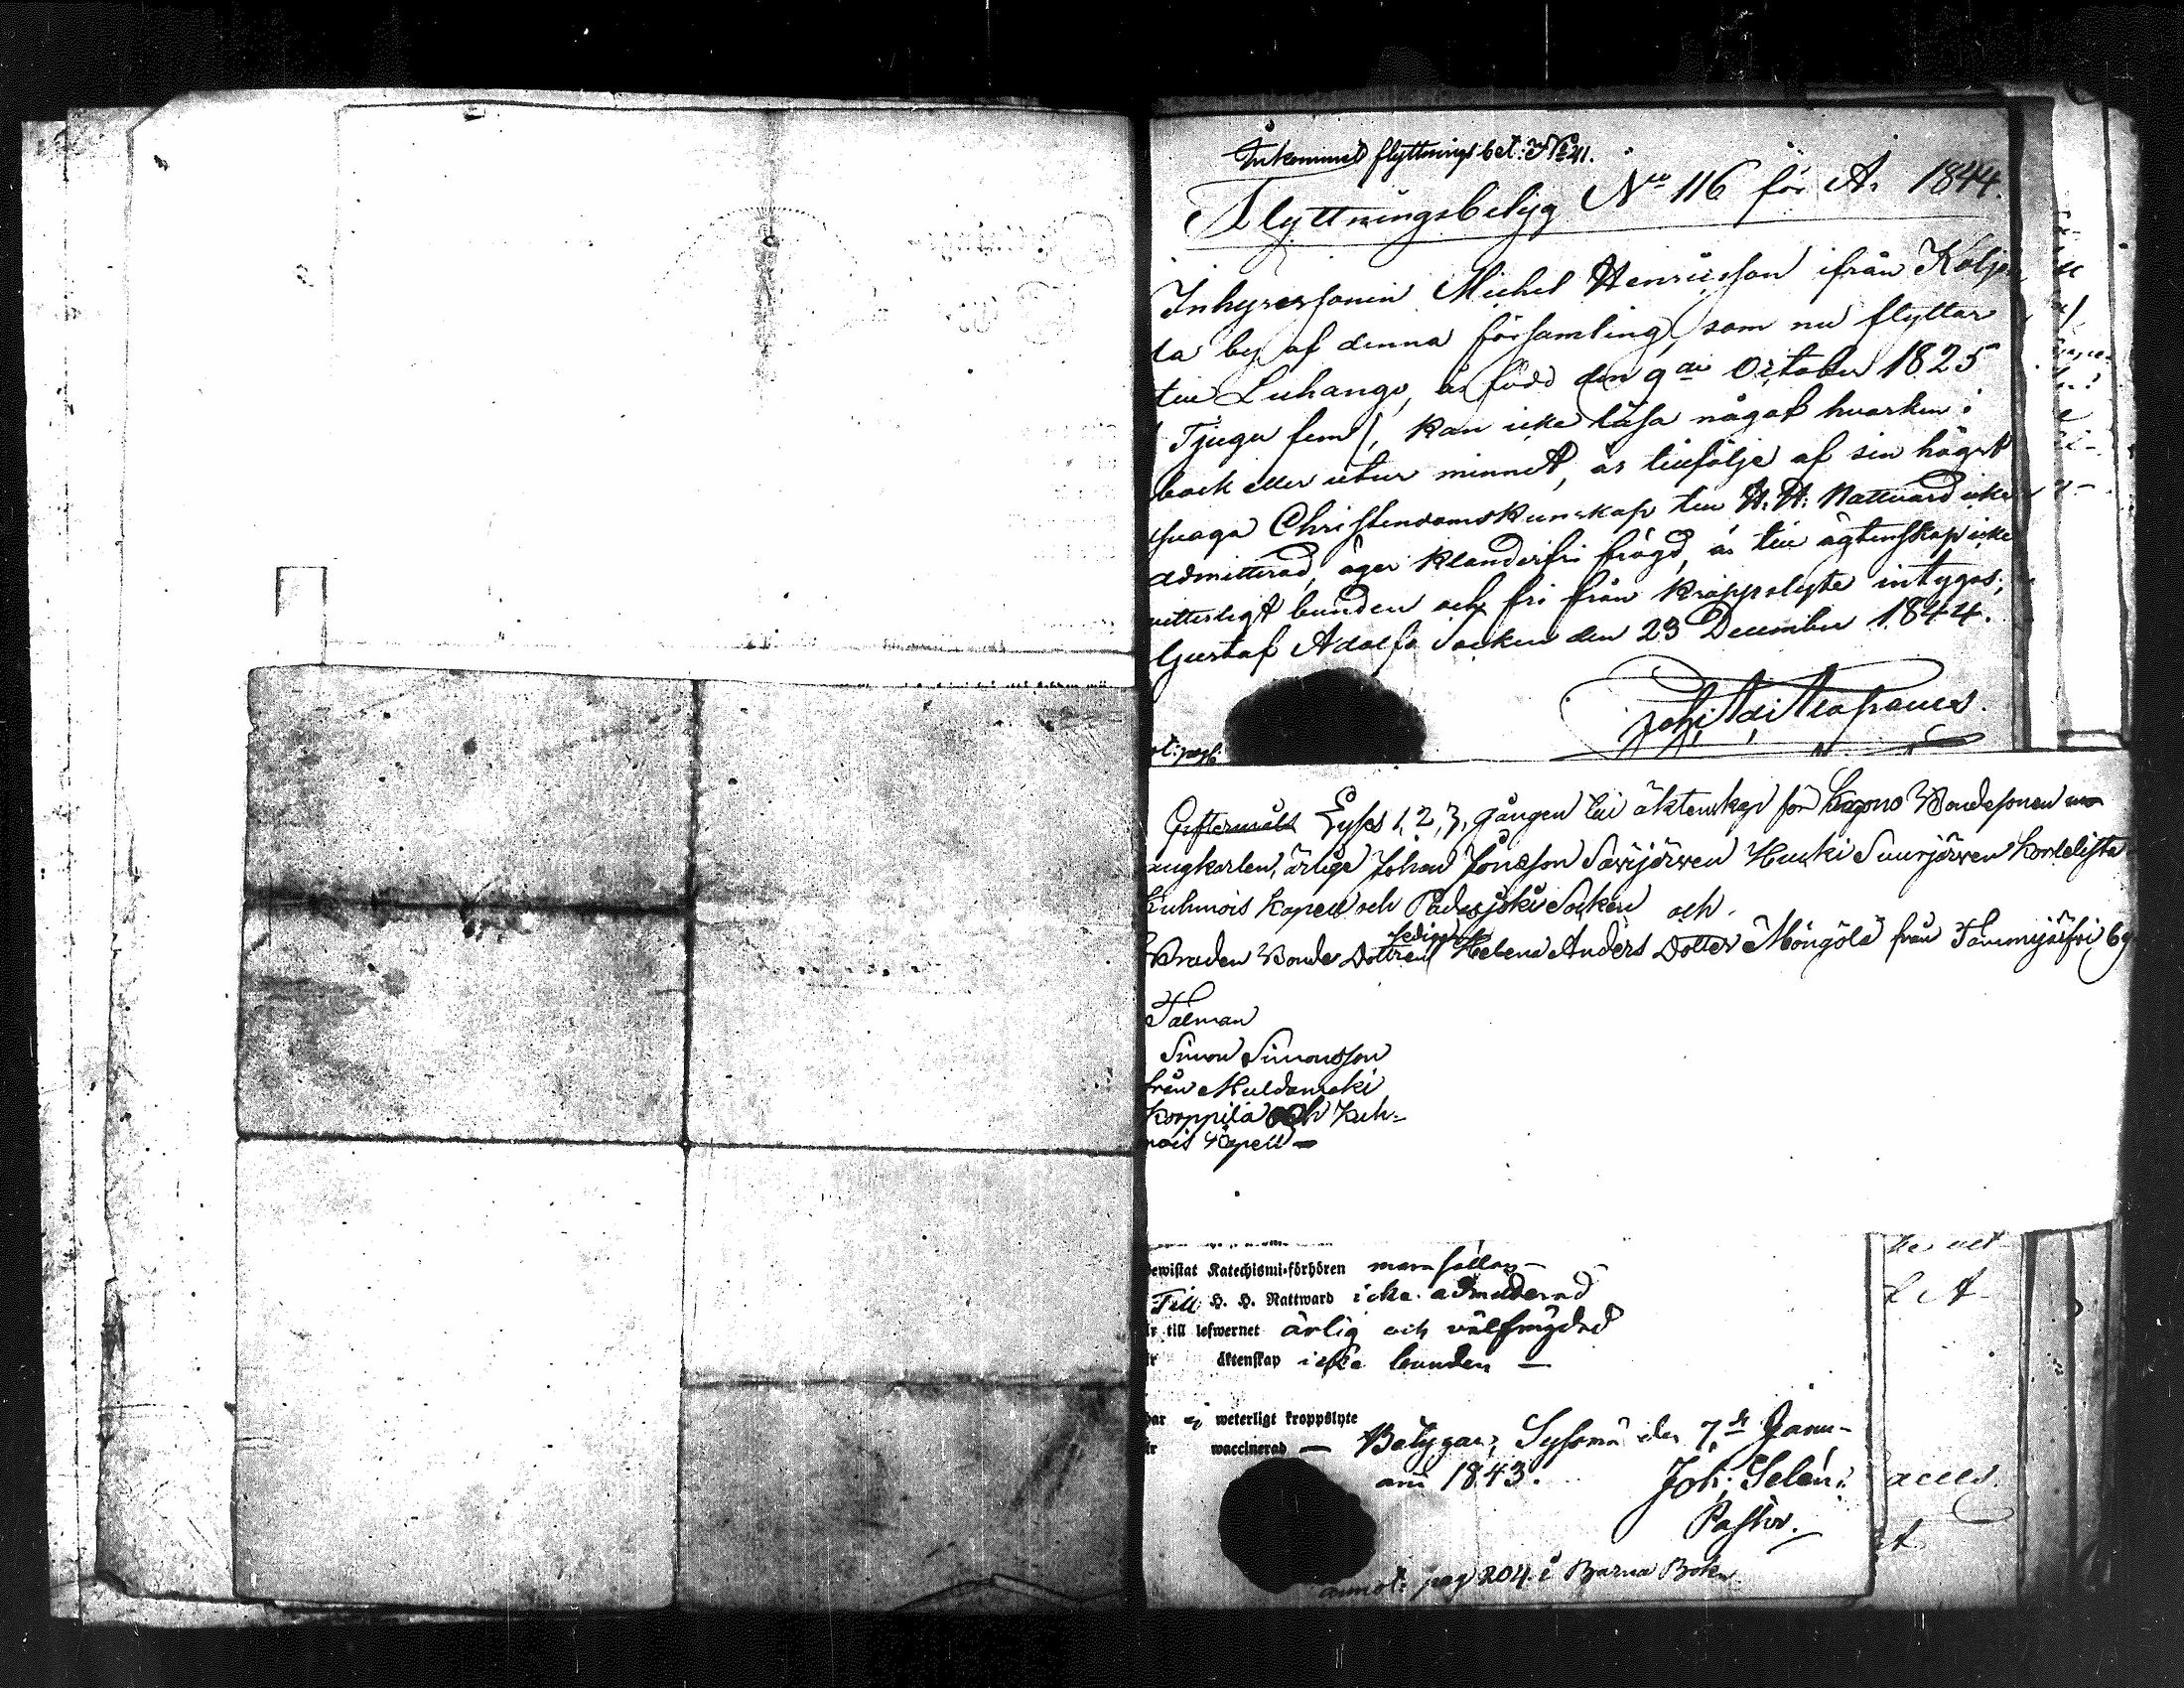 Inkommet flyttningsbet: No 41.
Flyttningsbetyg No 116 för År 1844.
Inhyressonen Michel Henricsson ifrån Koljo
la by af denna församling, som nu flyttar
till Luhango, är född den 9de October 1825
/Tjugu fem/, kan icke läsa något hvarken i
bock eller utur minnet, är tillfölje af sin högst
svaga Christendomskunskap till H. H. Nattvard icke
admitterad, äger klanderfri frägd, är till ägtenskap icke
vitterligt bunden och fri från kroppslyte intygas;
Gustaf Adolfs Socken den 23 December 1844.
ot: pag:
Lyses 1, 2, 3, gången till äktenskap för Bondesonen
ungkarlen, ärlige Johan Jönsson Särijärven Huski Suurjärven
Kuhmois Kapell och Padasjoki Socken och
Bruden Bonde Dottren Helena Anders Dotter Möngölä från Tammijärfvi by
Talman
Simon Simonsson
från Muldameki
Korppila och Kuh-
mois Kapell
ewistat Katechismi-förhören
Till H. H. Nattward icke admitterad
är till lefwernet ärlig och välfrägdad
är äktenskap icke bunden —
har ej weterligt kroppslyte
är waccinerad — Betygar; Sysmä den 7de Janu-
arii 1843. Joh: Selén:
Pastor.
annot: pag 204. i Barna Boken